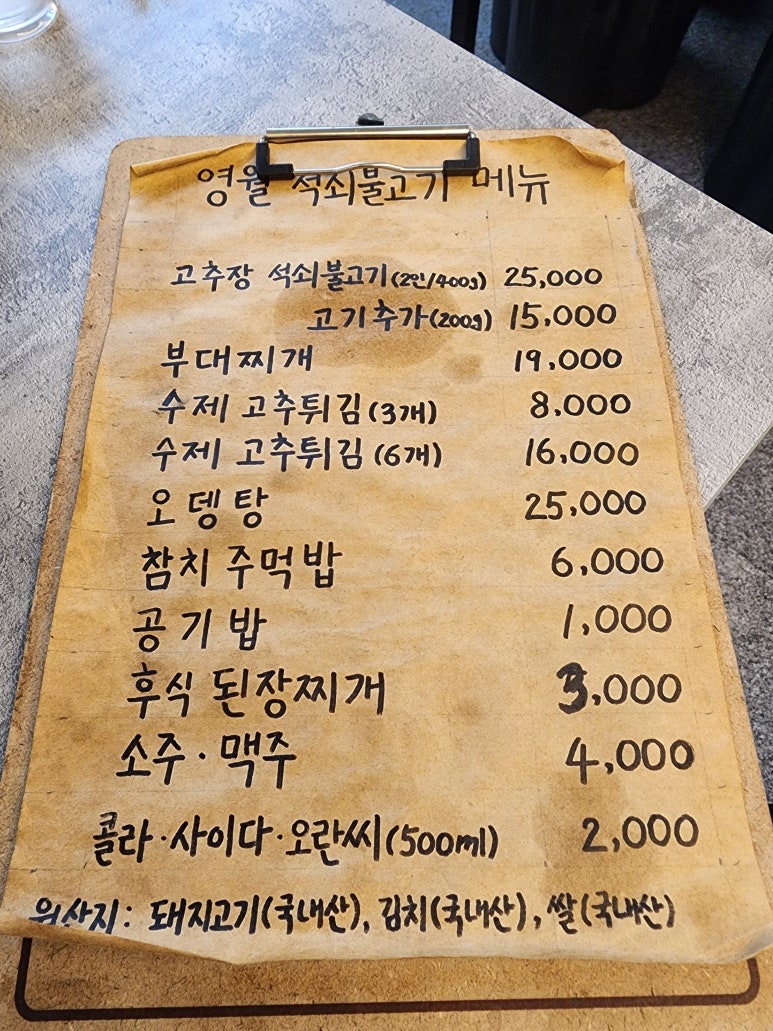 영월 석쇠불고기 메뉴
고추장 석쇠불고기(2인/400g) 25,000
고기추가(200g) 15,000
부대찌개 19,000
수제 고추튀김(3개) 8,000
수제 고추튀김(6개) 16,000
오뎅탕 25,000
참치 주먹밥 6,000
공기밥 1,000
후식 된장찌개 3,000
소주·맥주 4,000
콜라·사이다·오란씨(500ml) 2,000
원산지: 돼지고기(국내산), 김치(국내산), 쌀(국내산)